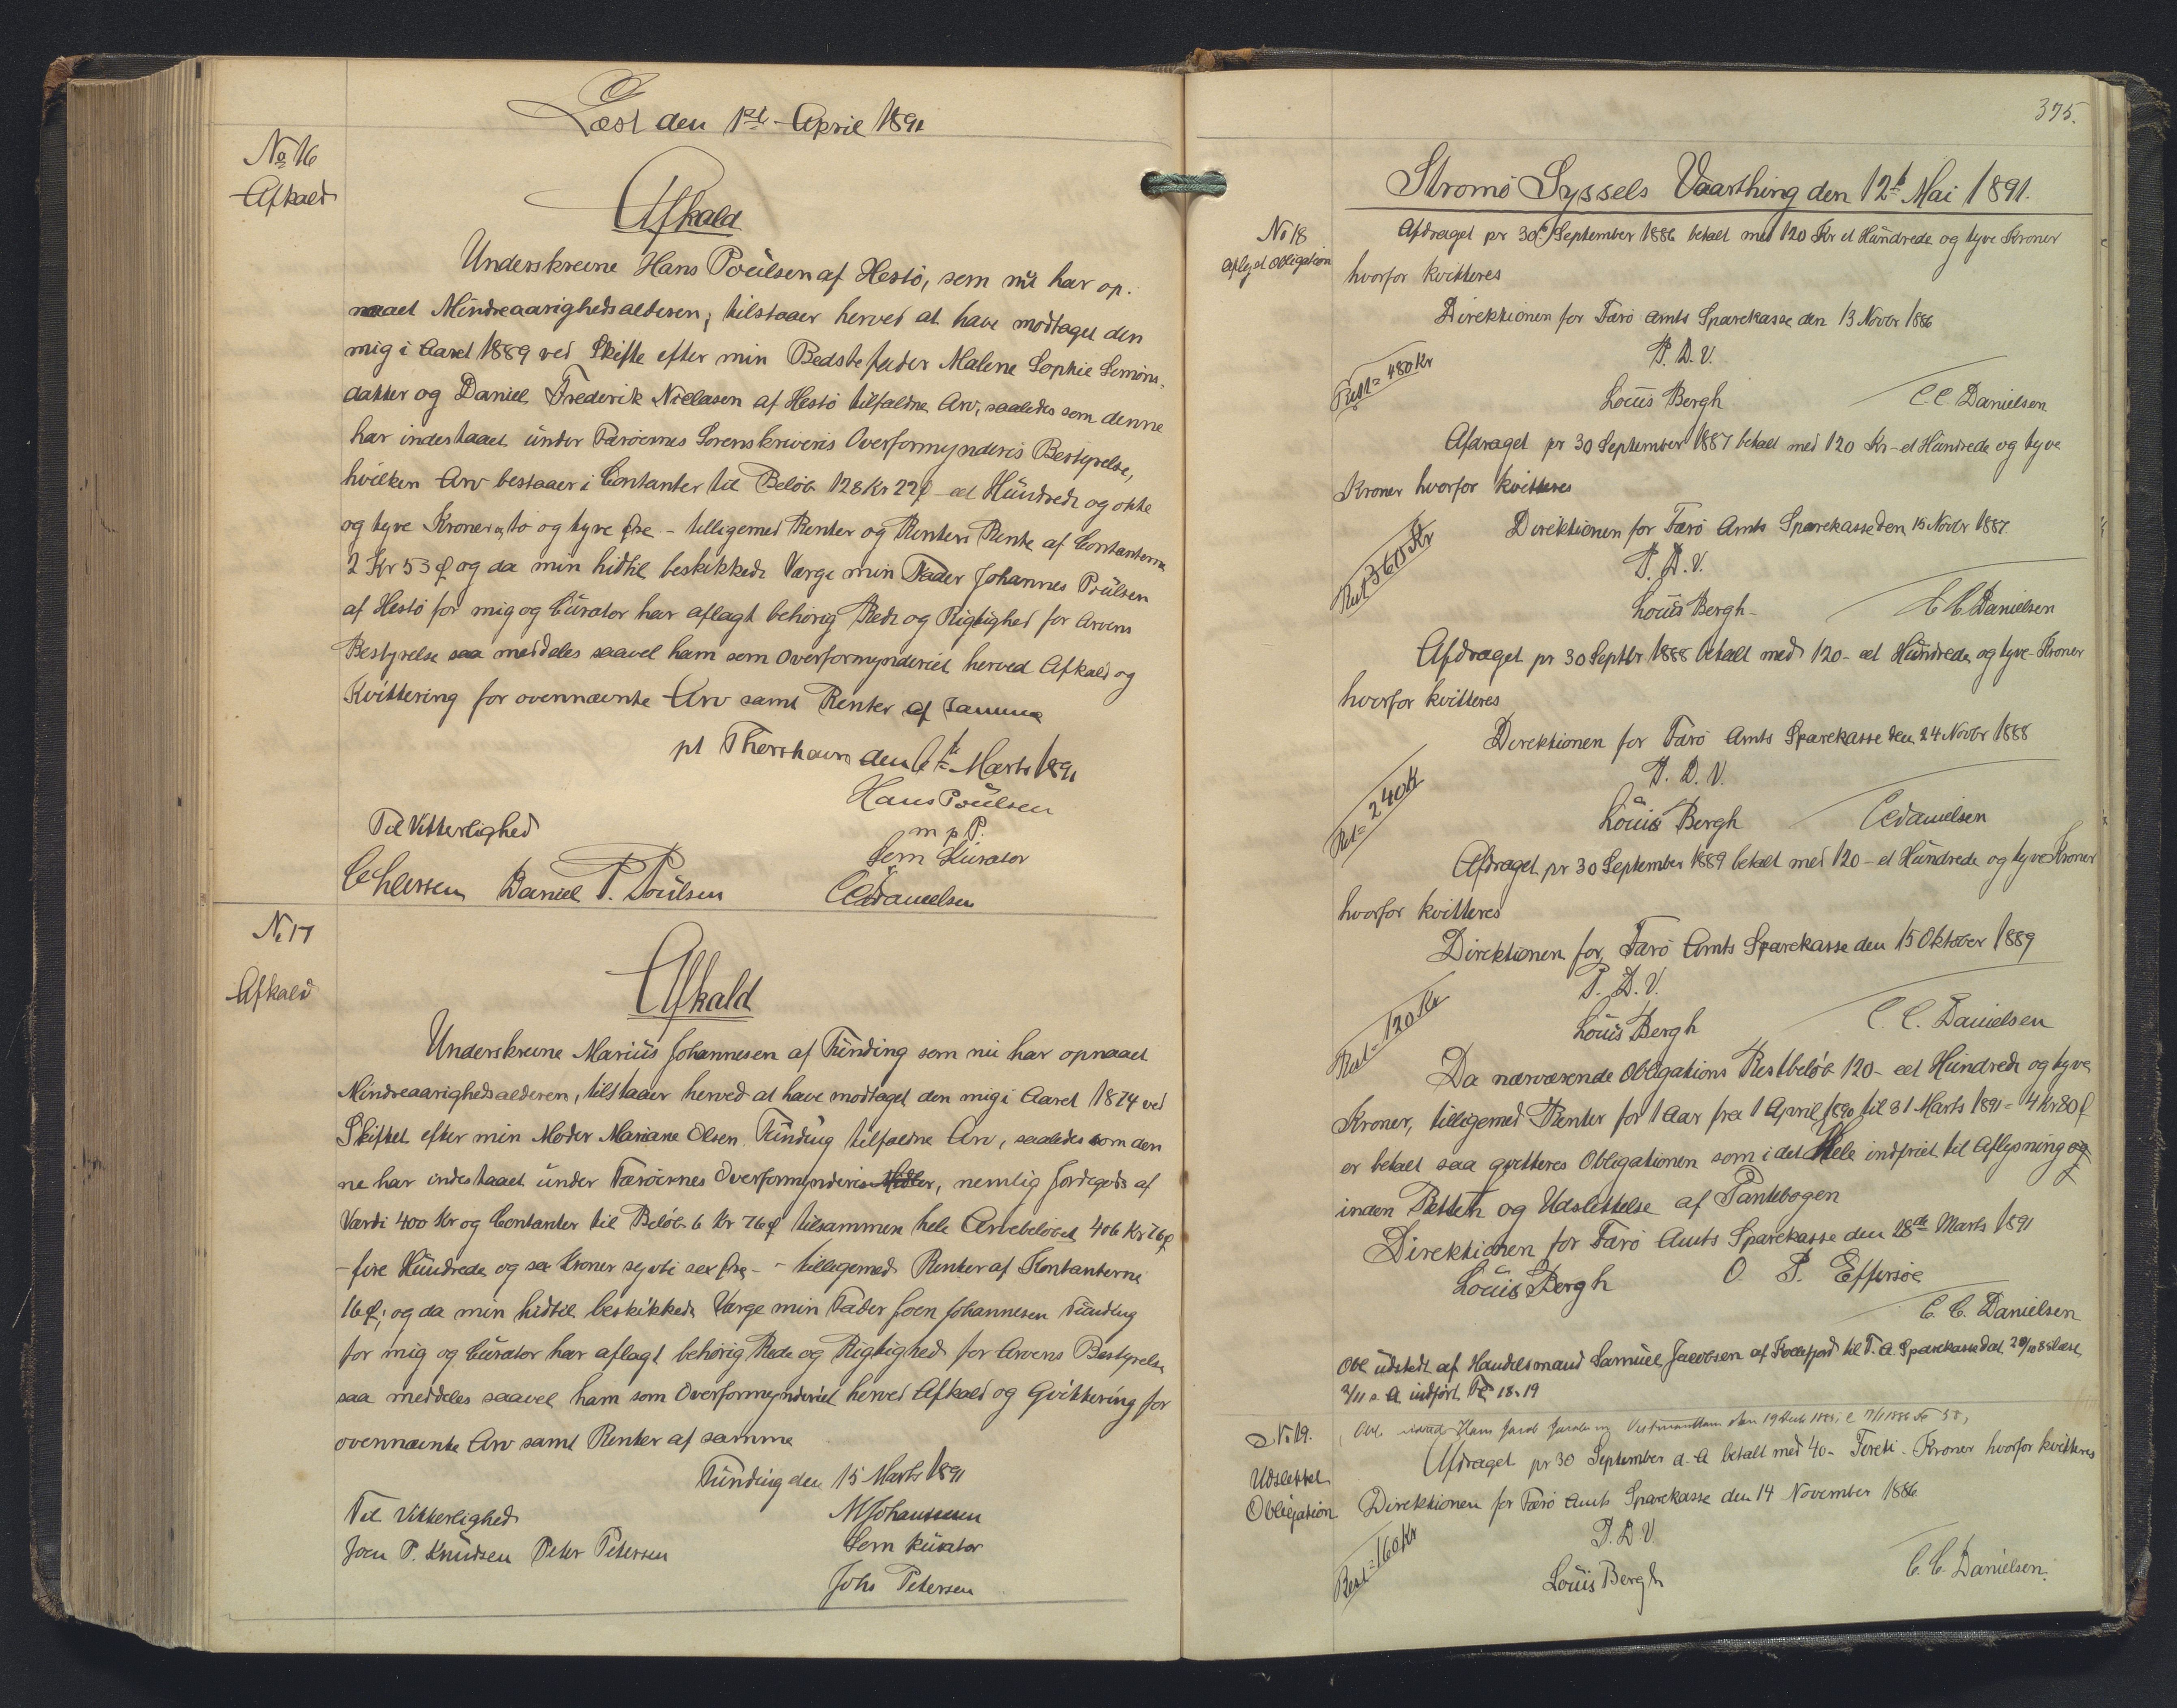 Læst den 1ste April 1891
No 16
Afkald
Afkald
Underskrevne Hans Poulsen af Hestö, som nu har op-
naaet Mindreaarighedsalderen, tilstaaer herved at have modtaget den
mig i Aaret 1889 ved Skifte efter min Bedstefader Malene Sophie Simons-
datter og Daniel Frederik Nielasen af Hestö tilfaldne Arv, saaledes som denne
har indestaaet under Færöernes Sorenskriveris Overformynderis Bestyrelse,
hvilken Arv bestaaer i Contanter til Belöb 128 Kr 22 ø - et Hundrede og otte
og tyve Kroner og to og tyve Øre - tilligemed Renter og Renters Rente af Contanterne
2 Kr 53 ø og da min hidtil beskikkede Værge min Fader Johannes Poulsen
af Hestö for mig og Curator har aflagt behörig Rede og Rigtighed for Arvens
Bestyrelse saa meddeles saavel ham som Overformynderiet herved Afkald og
Kvittering for ovennævnte Arv samt Renter af samme
pt Thorshavn den 6te Marts 1891
Hans Poulsen
m p P.
Til Vitterlighed
Som Kurator
Daniel P. Poulsen
C C Danielsen
No 17
Afkald
Afkald
Underskrevne Marius Johannesen af Funding som nu har opnaaet
Mindreaarighedsalderen, tilstaaer herved at have modtaget den mig i Aaret 1874 ved
Skiftet efter min Moder Mariane Olsen, Funding tilfaldne Arv, saaledes som den
ne har indestaaet under Færöernes Overformynderis Midler, nemlig Jordegods af
Værdi 400 Kr og Contanter til Belöb 6 Kr 76 ø tilsammen hele Arvebelöbet 406 Kr 76 ø
- fire Hundrede og sex Kroner syvti sex Øre - - tilligemed Renter af Kontanterne
16 ø; og da min hidtil beskikkede Værge min Fader Joen Johannesen Funding
for mig og Curator har aflagt behörig Rede og Rigtighed for Arvens Bestyrelse
saa meddeles saavel ham som Overformynderiet herved Afkald og Qvittering for
ovennævnte Arv samt Renter af samme
Funding den 15 Marts 1891
Til Vitterlighed
M Johannesen
Som Kurator
Joen P. Knudsen Peter Petersen
Johs Petersen
375.
Strömö Syssels Vaarthing den 12te Mai 1891.
No 18
Aflyst Obligation
Afdraget pr 30 September 1886 betalt med 120 Kr et Hundrede og tyve Kroner
hvorfor kvitteres
Direktionen for Færö Amts Sparekasse den 13 Novbr 1886
P. D. V.
Rest = 480 Kr
Louis Bergh C. C. Danielsen
Afdraget pr 30 September 1887 betalt med 120 Kr - et Hundrede og tyve
Kroner hvorfor kvitteres
Direktionen for Færö Amts Sparekasse den 15 Novbr 1887
P. D. V.
Rest 360 Kr
Louis Bergh - C C Danielsen
Afdraget pr 30 Septbr 1888 betalt med 120 - et Hundrede og tyve - Kroner
hvorfor kvitteres
Direktionen for Færö Amts Sparekasse den 24 Novbr 1888
P. D. V.
Rest = 240 Kr
Louis Bergh C C Danielsen
Afdraget pr 30 September 1889 betalt med 120 - et Hundrede og tyve Kroner
hvorfor kvitteres
Direktionen for Færö Amts Sparekasse den 15 Oktober 1889
P. D. V.
Rest = 120 Kr
Louis Bergh C. C. Danielsen
Da nærværende Obligations Restbelöb 120 - et Hundrede og tyve
Kroner, tilligemed Renter for 1 Aar fra 1 April 1890 til 31 Marts 1891 = 4 Kr 80 ø
er betalt saa qvitteres Obligationen som i det Hele indfriet til Aflysning og
inden Retten og Udslettelse af Pantebogen
Direktionen for Færö Amts Sparekasse den 28de Marts 1891
Louis Bergh O P. Effersöe
C. C. Danielsen
Obl udstedt af Handelsmand Samuel Jacobsen af til F. A. Sparekasse dat læst
3/11 s. A indfört Fo 18-19
No 19.
Udslettet
Obligation
Obl. Hans Jacob
Afdraget pr 30 September d. A betalt med 40 - Fireti - Kroner hvorfor kvitteres
Direktionen for Færö Amts Sparekasse den 14 November 1886
P. D V.
Rest = 160 Kr
Louis Bergh C. C. Danielsen.